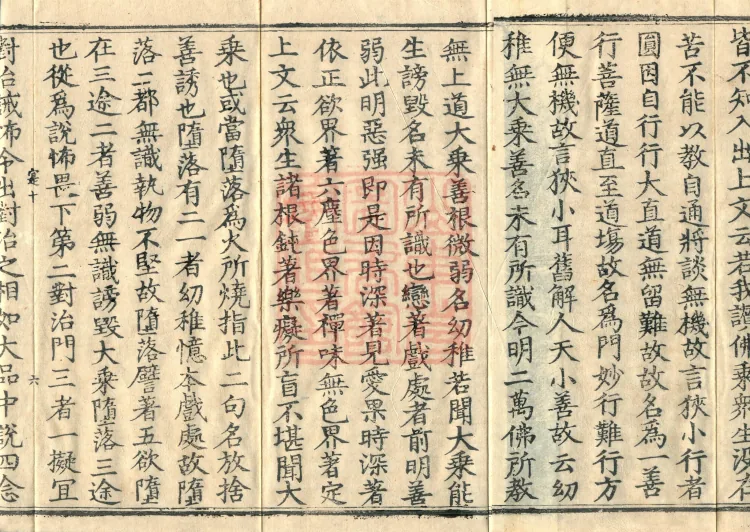 皆不知入出上文云若我讃佛乗衆生没在
苦不能以教自通將談無機故言狹小行者
圓因自行行大直道無留難故故名為一善
行菩薩道直至道場故名爲門妙行難行方
便無機故言狹小耳舊解人天小善故云幼
稚無大乗善名未有所識今明二萬佛所教
無上道大乗善根微弱名幼稚若聞大乗能
生謗毀名未有所識也戀著戲處者前明善
弱此明惡强即是因時深著見愛果時深著
依正欲界著六塵色界著禪味無色界著定
上文云衆生諸根鈍著樂癡所盲不堪聞大
乗也或當墮落為火所燒指此二句名放捨
善誘也墮落有二一者幼稚憶本戲處故墮
落二都無識執物不堅故墮落譬著五欲墮
在三途二者善弱無識謗毀大乗墮落三途
也從爲說怖畏下第二對治門三者一擬冝
寔十
六
對治誡怖今出對治之相如大品中說四念